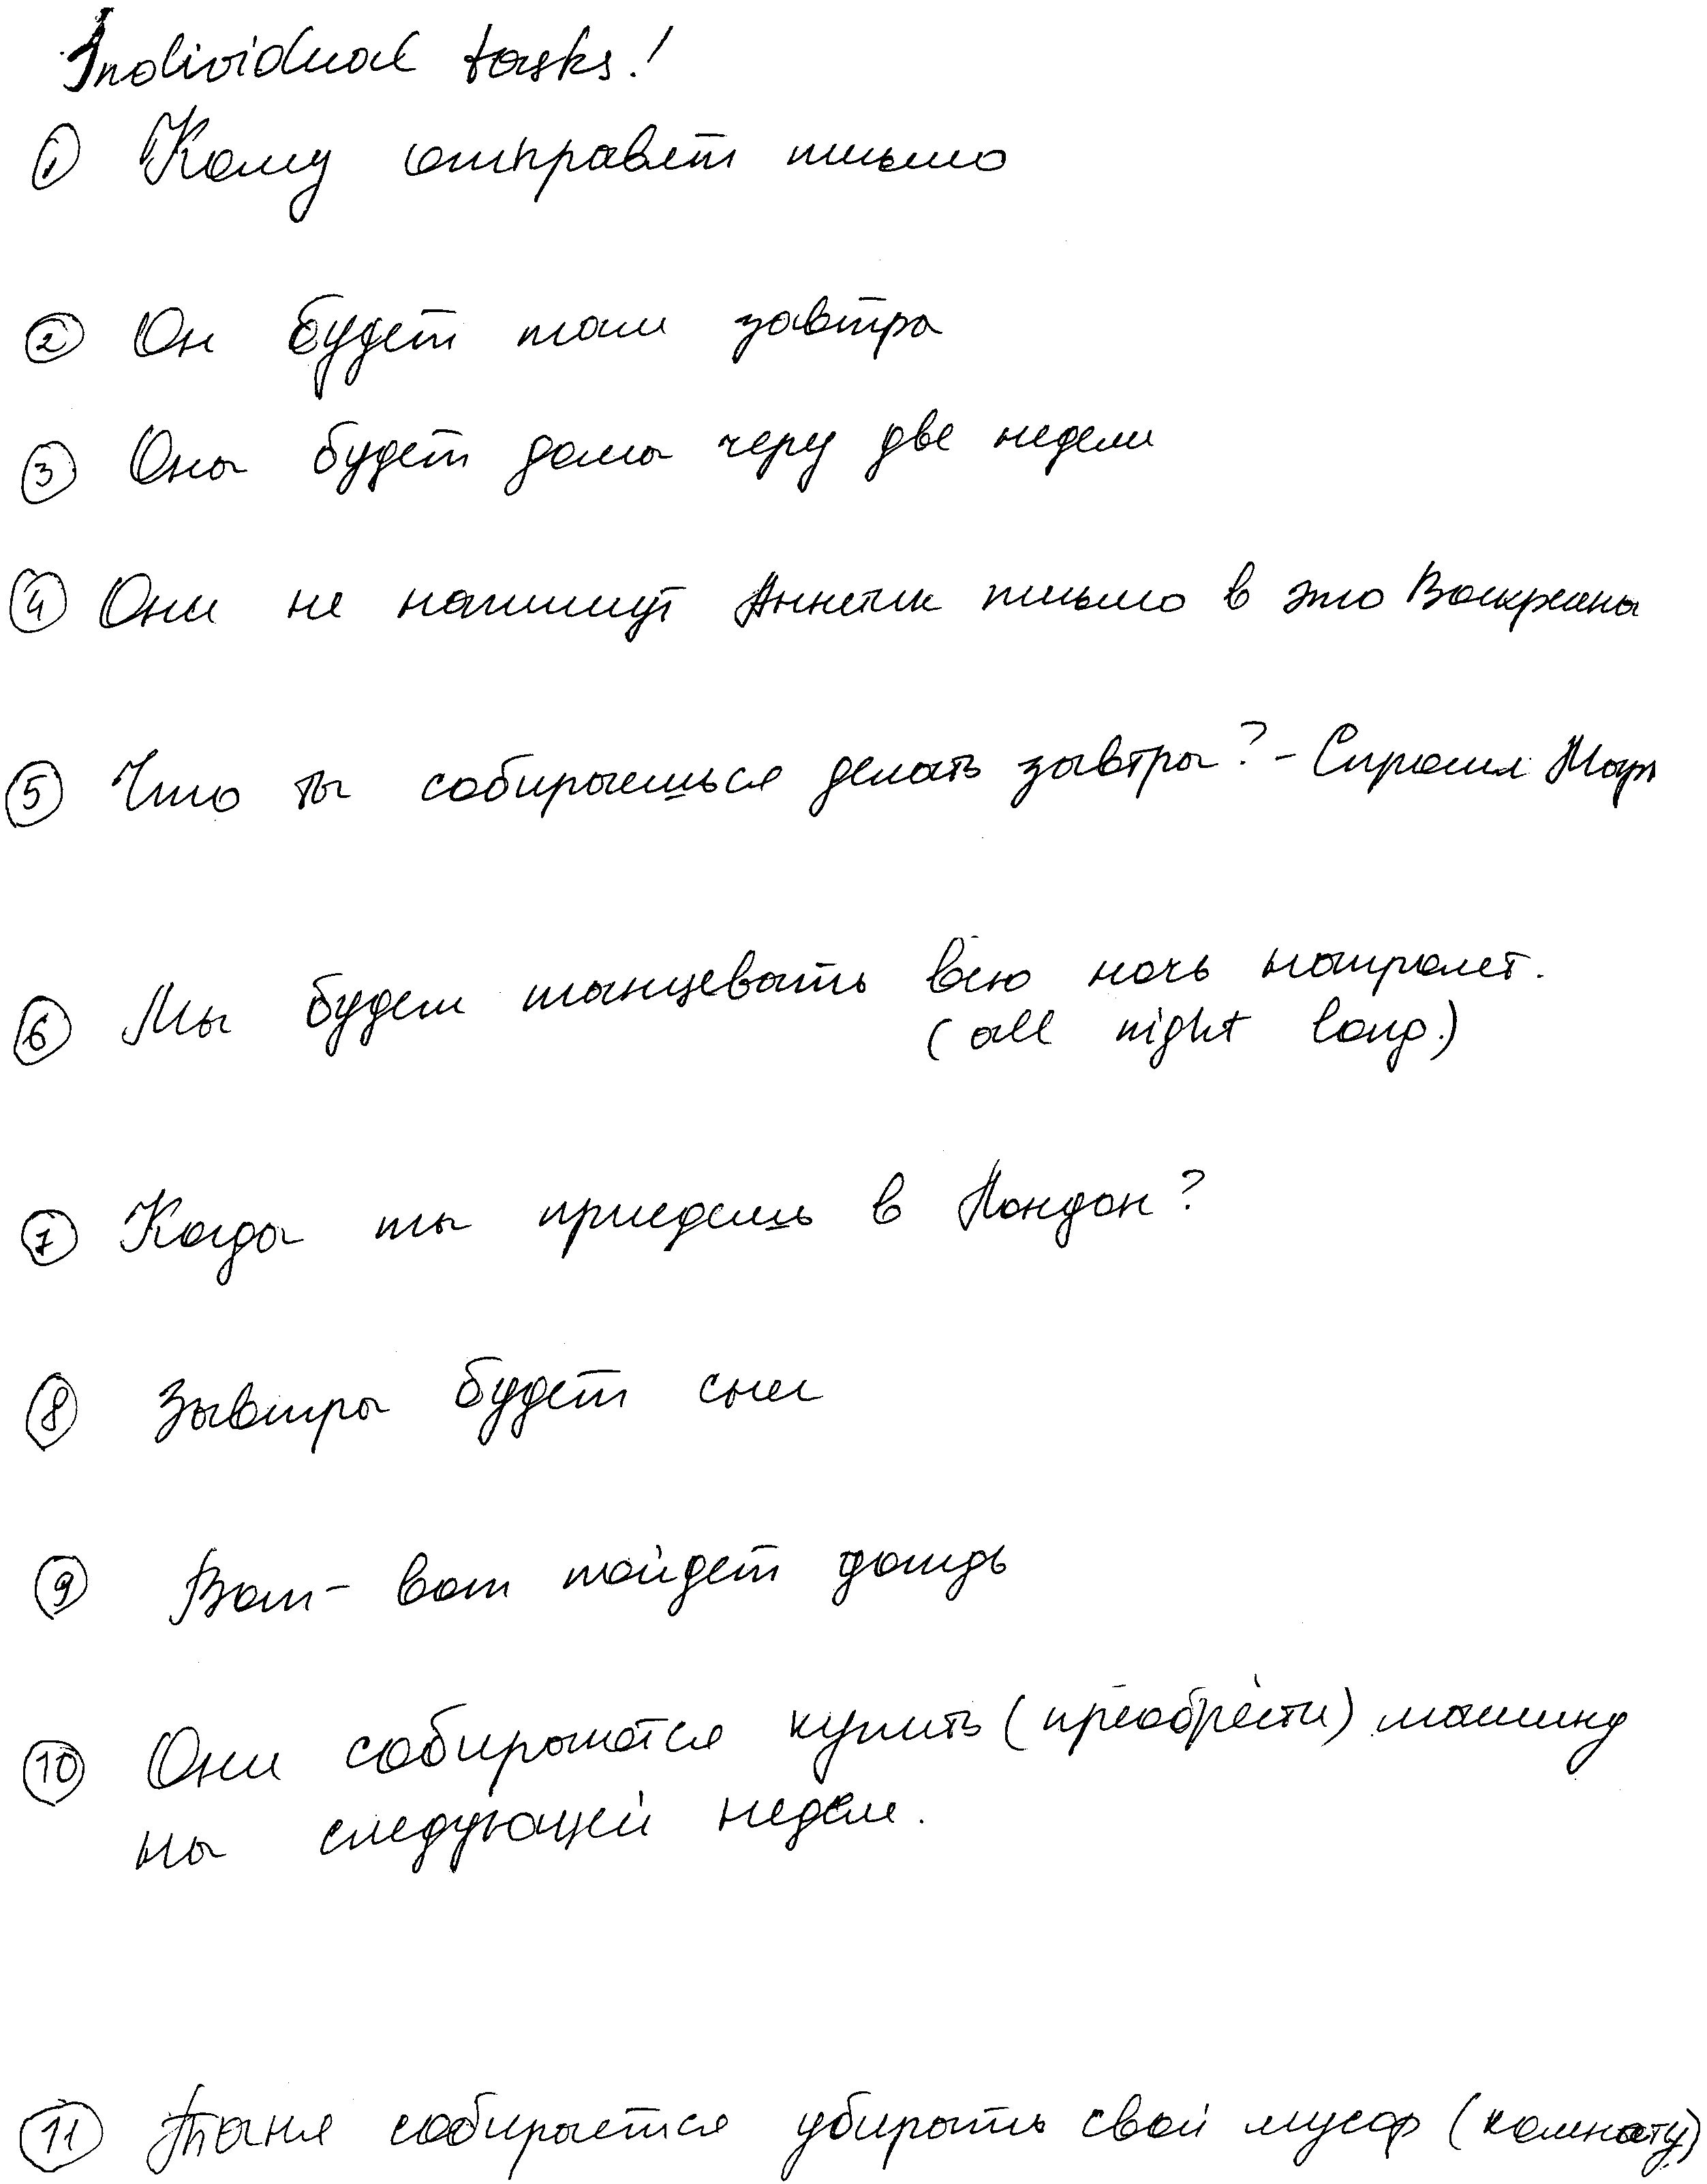 Individual tasks!
① Кому отправят письмо
② Он будет там завтра
③ Она будет дома через две недели
④ Они не напишут письмо в это Воскресенье
⑤ Что ты собираешься делать завтра? - Спросил Марк
⑥ Мы будем танцевать всю ночь напролет.
(all night long.)
⑦ Когда ты приедешь в Лондон?
⑧ Завтра будет снег
⑨ Вот-вот пойдет дождь
⑩ Они собираются купить (преобрести) машину
на следующей неделе.
⑪ Таня собирается убирать свой мусор (комнату)